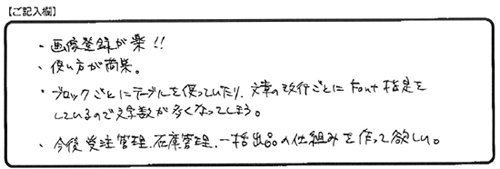 【ご記入欄】
・画像登録が楽!!
・使い方が簡楽。
・ブロックごとにテーブルを使っていたり、文章の改行ごとにfont指定を
しているので文字数が多くなってしまう。
・今後受注管理、在庫管理、一括出品の仕組みを作って欲しい。